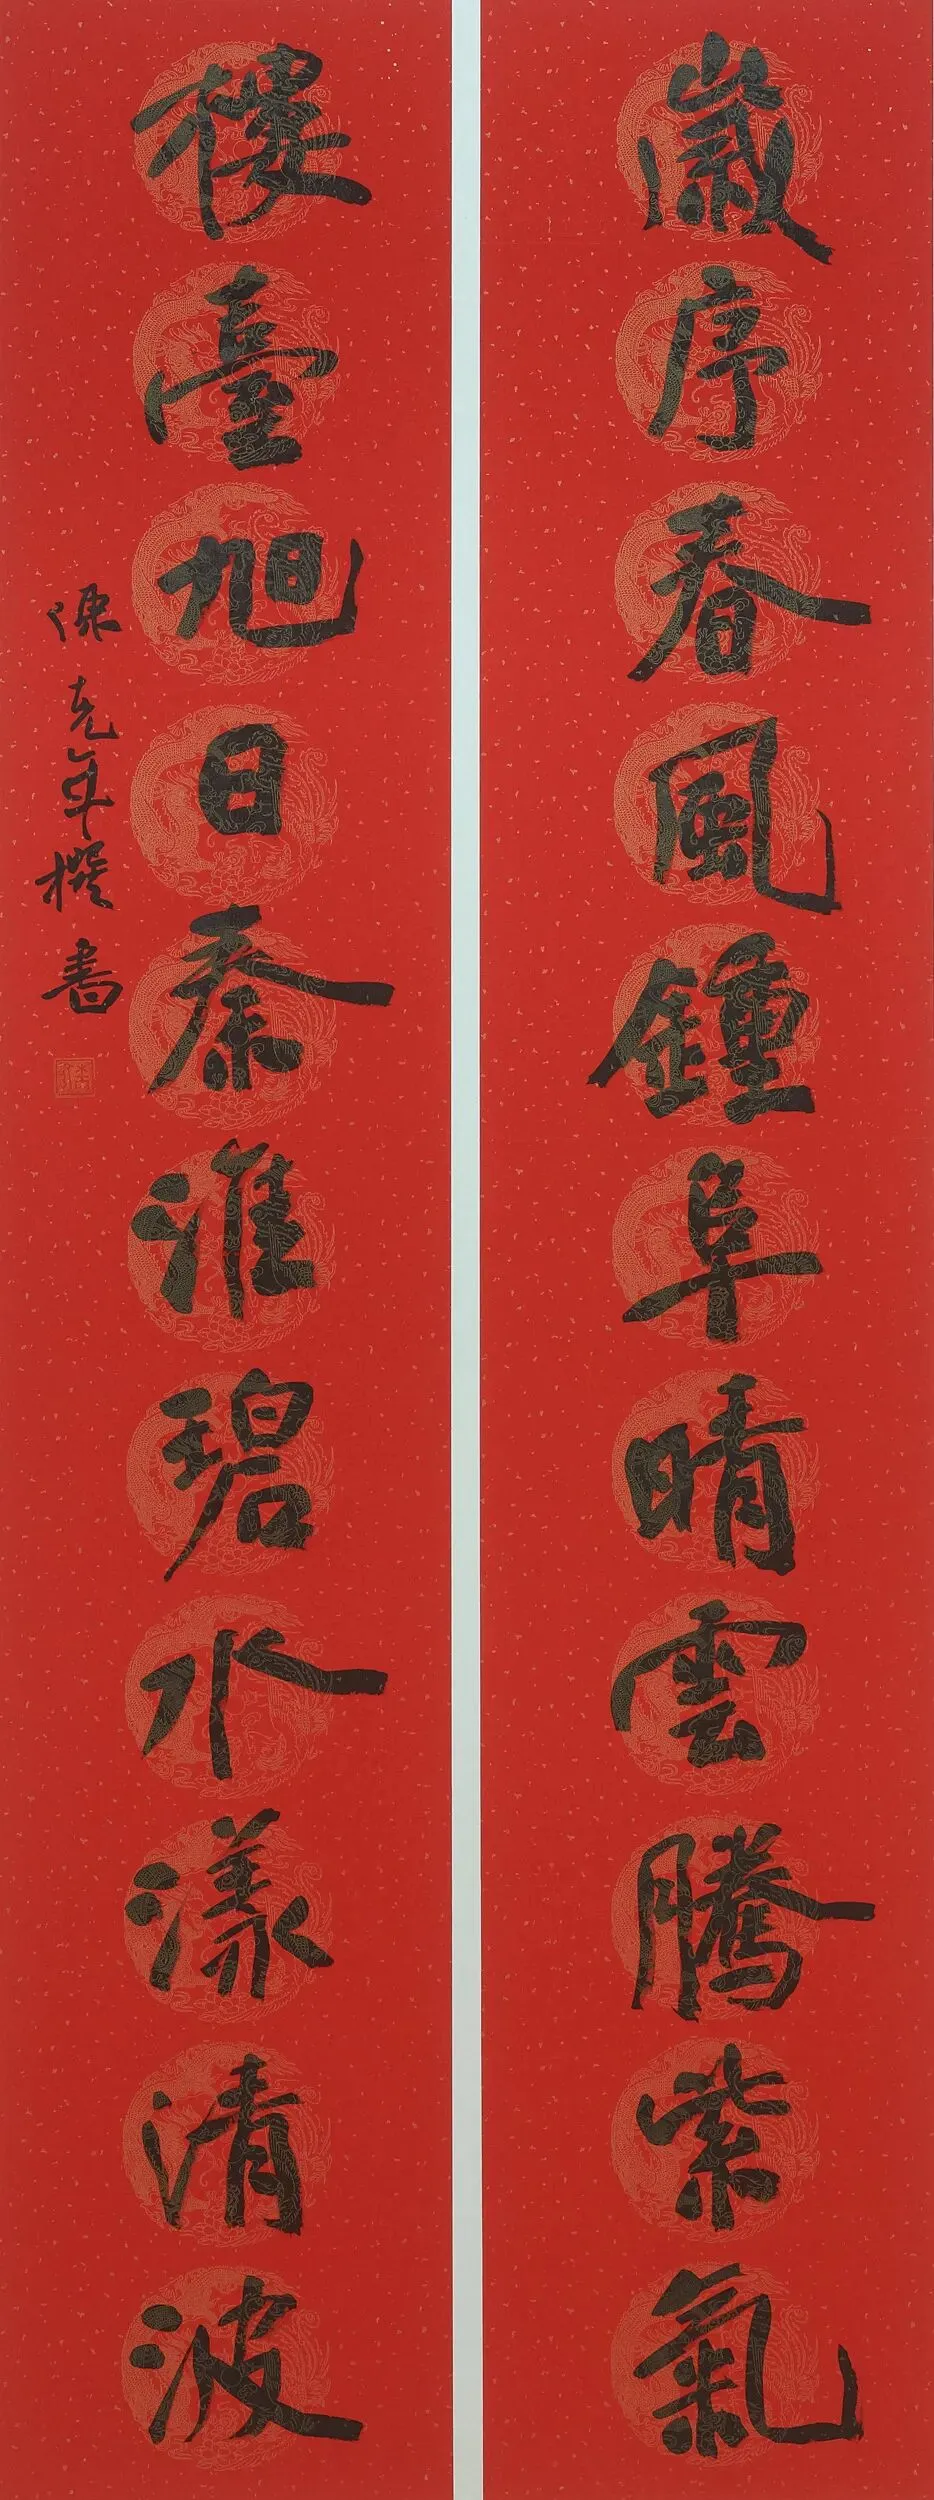 歲序春風鍾阜晴雲騰紫氣
樓臺旭日秦淮碧水漾清波
陳克年撰書